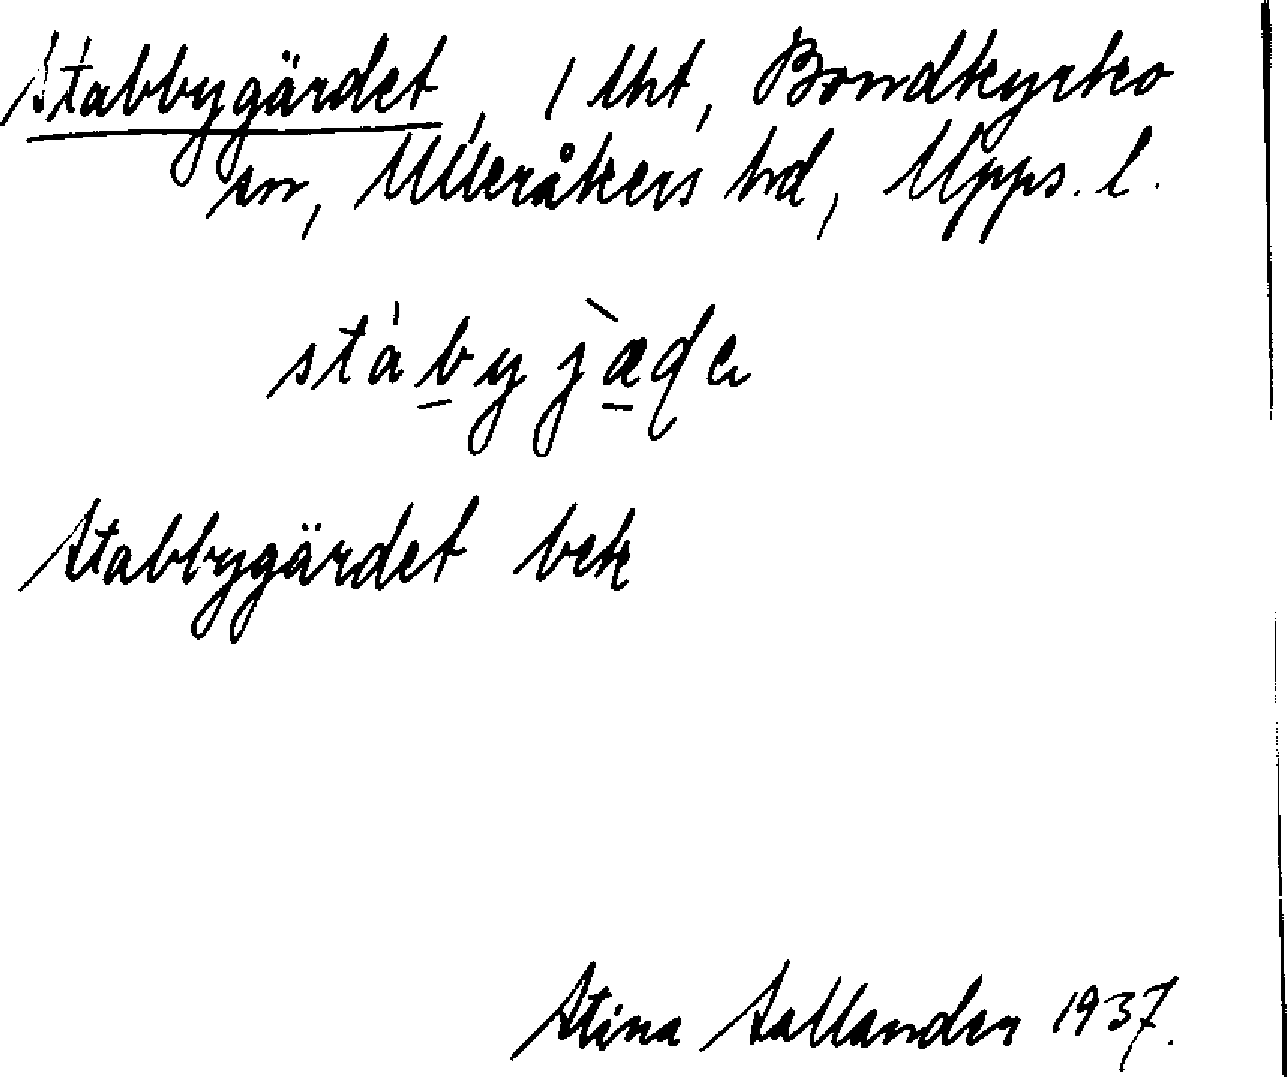 Stabbygärdet, 1 lht, Bondkyrko
sn, Ulleråkers hd, Upps. l.
Stabbygärdet bek
Stina Sallander 1937.